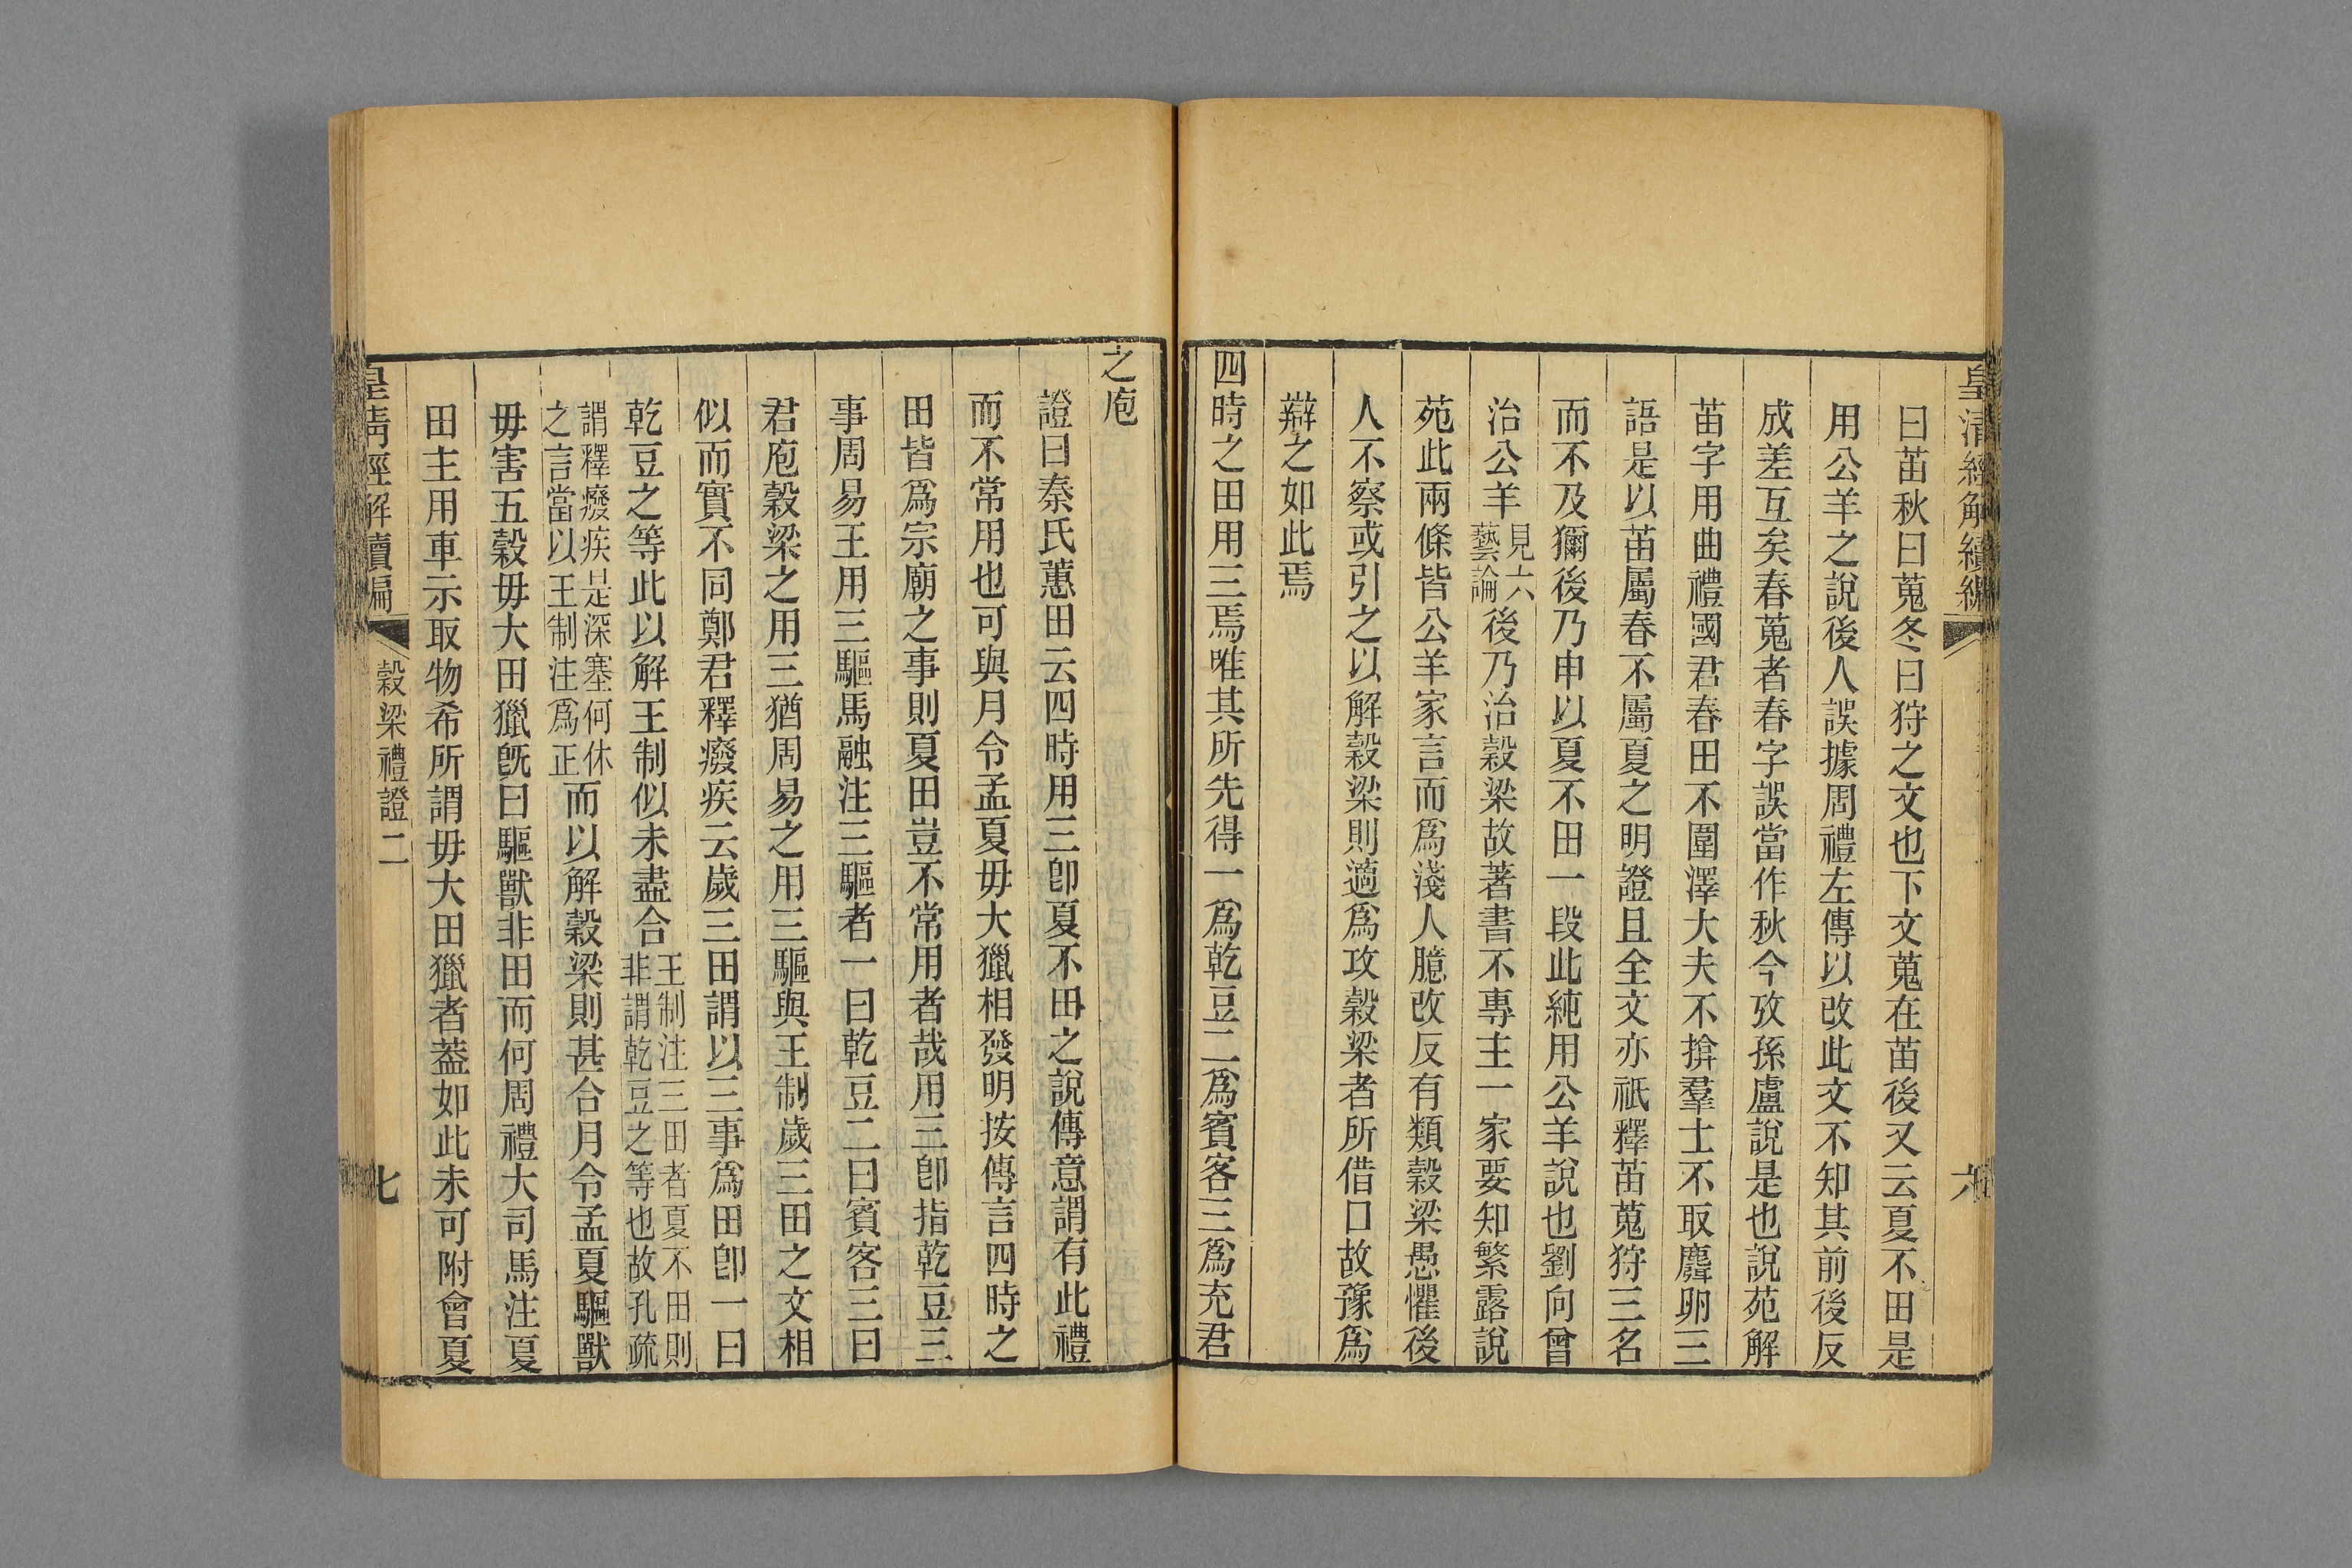 皇清經解續編
六
曰苗秋曰蒐冬曰狩之文也下文蒐在苗後又云夏不田是
用公羊之說後人誤據周禮左傳以改此文不知其前後反
成差互矣春蒐者春字誤當作秋今攷孫盧說是也說苑解
苗字用曲禮國君春田不圍澤大夫不揜羣士不取麛卵三
語是以苗屬春不屬夏之明證且全文亦祇釋苗蒐狩三名
而不及獮後乃申以夏不田一段此純用公羊說也劉向曾
治公羊見六藝論後乃治穀梁故著書不專主一家要知繁露說
苑此兩條皆公羊家言而爲淺人臆改反有類穀梁愚懼後
人不察或引之以解穀梁則適爲攻穀梁者所借口故豫爲
辯之如此焉
四時之田用三焉唯其所先得一爲乾豆二爲賓客三爲充君
之庖
證曰秦氏蕙田云四時用三卽夏不田之說傳意謂有此禮
而不常用也可與月令孟夏毋大獵相發明按傳言四時之
田皆爲宗廟之事則夏田豈不常用者哉用三卽指乾豆三
事周易王用三驅馬融注三驅者一曰乾豆二曰賓客三曰
君庖穀梁之用三猶周易之用三驅與王制歲三田之文相
似而實不同鄭君釋癈疾云歲三田謂以三事爲田卽一曰
乾豆之等此以解王制似未盡合王制注三田者夏不田則非謂乾豆之等也故孔疏
謂釋癈疾是深塞何休之言當以王制注爲正而以解穀梁則甚合月令孟夏驅獸
毋害五穀毋大田獵旣曰驅獸非田而何周禮大司馬注夏
田主用車示取物希所謂毋大田獵者葢如此未可附會夏
皇清經解續編
穀梁禮證二
七